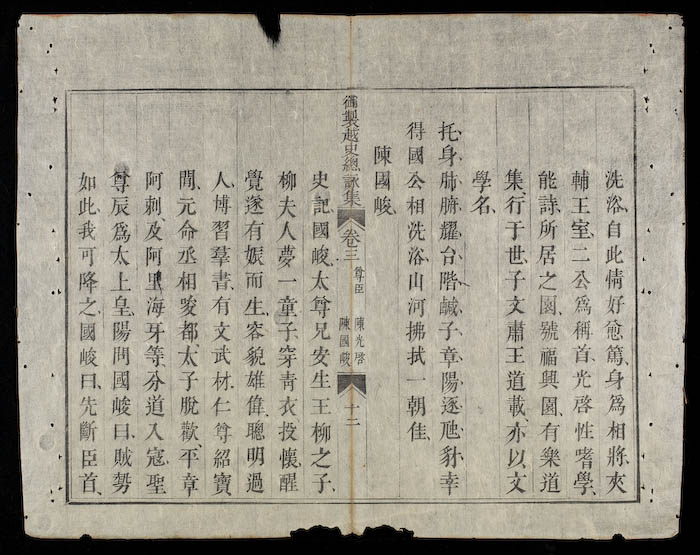 洗浴、自此情好愈篤、身爲相將、夾
輔王室、二公爲稱首、光啓性嗜學、
能詩、所居之園、號福興園、有樂道
集、行于世、子文肅王道載、亦以文
學名、
托身肺腑耀台階鹹子章陽逐虺豺幸
得國公相洗浴山河拂拭一朝佳
陳國峻
御製越史總詠集 卷三 尊臣 陳光啓 陳國峻 十二
史記、國峻、太尊兄安生王柳之子、
柳夫人夢一童子、穿青衣投懷、醒
覺遂有娠而生、容貌雄偉、聰明過
人、博習羣書、有文武材、仁尊紹寶
間、元命丞相唆都、太子脫歡、平章
阿剌、及阿里海牙等、分道入寇、聖
尊辰爲太上皇、陽問國峻曰、賊勢
如此、我可降之、國峻曰、先斷臣首、